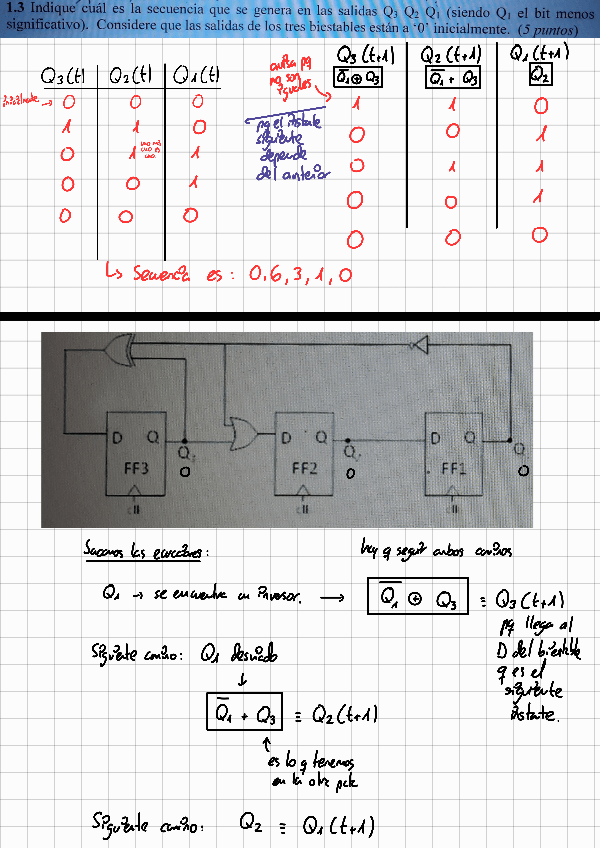 1.3 Indique cuál es la secuencia que se genera en las salidas Q3 Q2 Q1 (siendo Q1 el bit menos
significativo). Considere que las salidas de los tres biestables están a '0' inicialmente. (5 puntos)
Q3(t) Q2(t) Q1(t)
inicialmente → 0 0 0
1 1 0
0 1 1
0 0 1
0 0 0
pq
no son
iguales
Q3(t+1) Q2(t+1) Q1(t+1)
Q̅1 ⊕ Q3 Q̅1 + Q3 Q2
1 1 0
0 0 1
0 1 1
0 0 1
0 0 0
pq el instante
siguiente
depende
del anterior
↳ Secuencia es: 0,6,3,1,0
D Q
FF3
clk
Q
0
D Q
FF2
clk
Q
0
D Q
FF1
clk
Q
0
Sacamos las ecuaciones:
hay q seguir ambos caminos
Q1 → se encuentra un inversor. → Q̅1 ⊕ Q3 ≡ Q3(t+1)
pq llega al
D del biestable
q es el
siguiente
instante.
Siguiente camino: Q1 desviado
↓
Q̅1 + Q3 ≡ Q2(t+1)
↑
es lo q tenemos
en la otra pate
Siguiente camino: Q2 ≡ Q1(t+1)